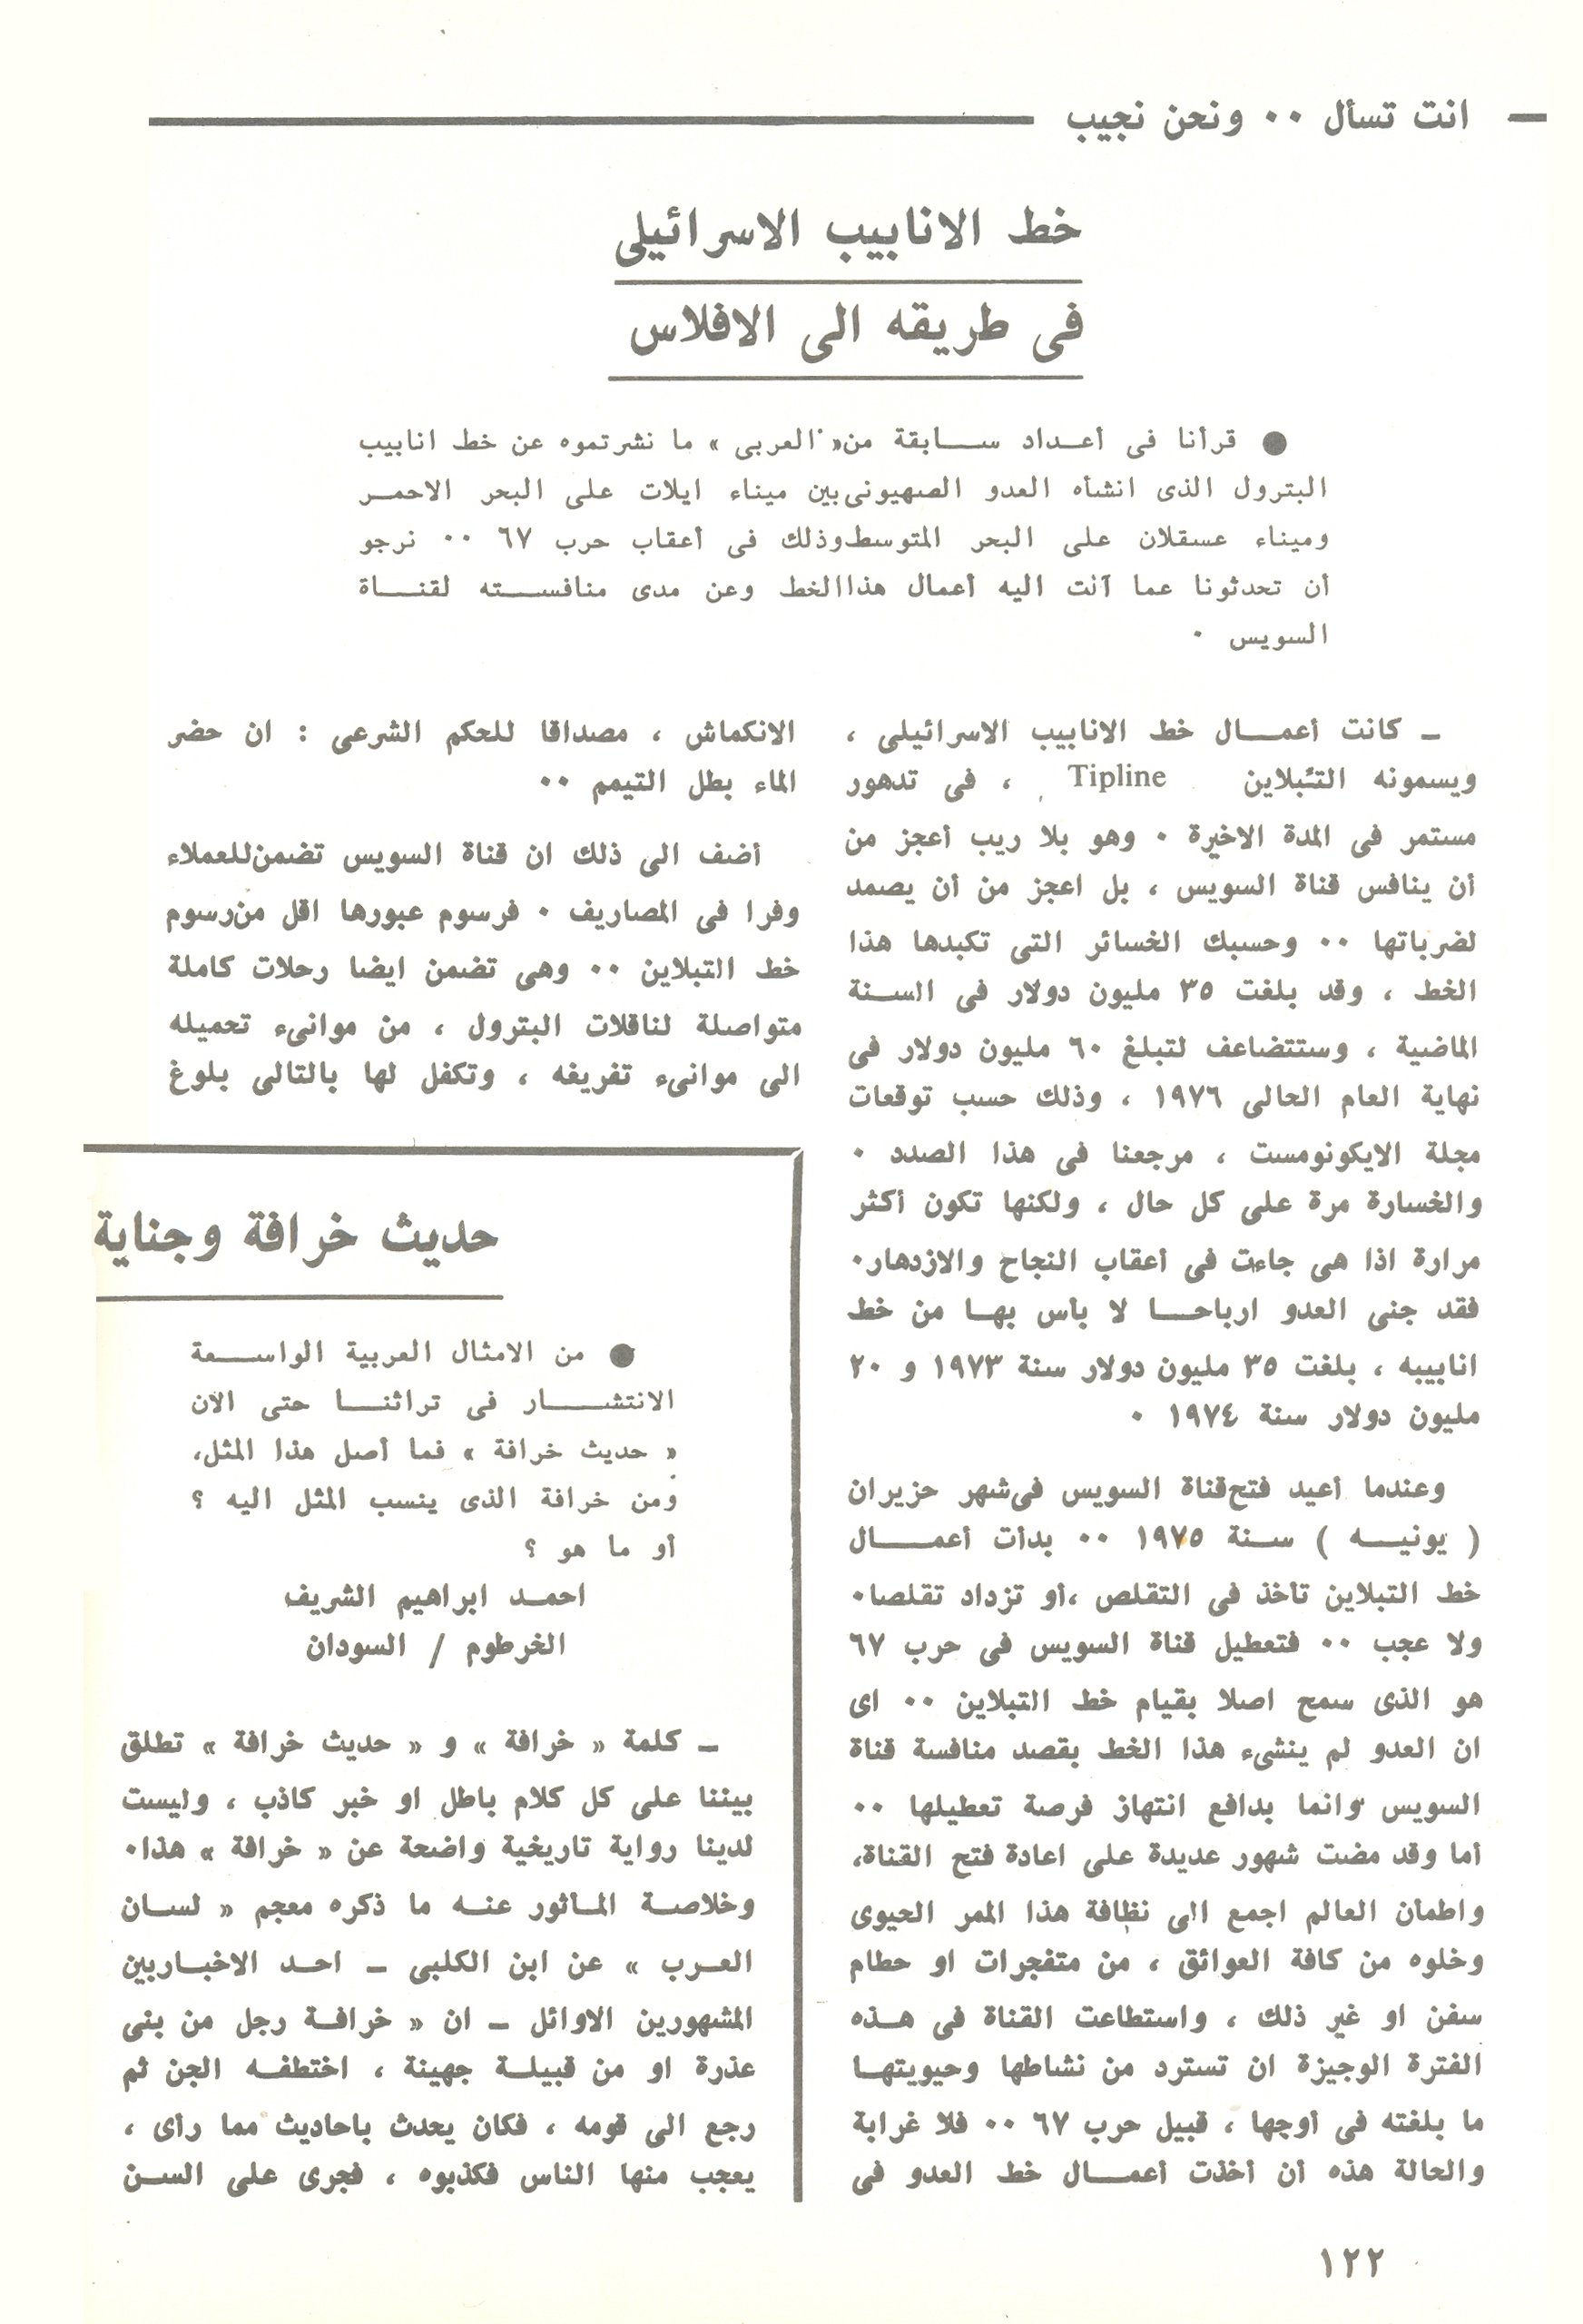 انت تسأل ٠٠ ونحن نجيب
خط الانابيب الاسرائيلى
فى طريقه الى الافلاس
● قرأنا فى أعـداد ســـابقة من « العربى » ما نشرتموه عن خط انابيب
البترول الذى انشأه العدو الصهيونى بين ميناء ايلات على البحر الاحمـر
وميناء عسقلان على البحر المتوسط وذلك فى أعقاب حرب ٦٧ ٠٠ نرجو
أن تحدثونا عما آلت اليه أعمال هذا الخط وعن مدى منافســـته لقنـــاة
السويس ٠
ـ كانت أعمـــال خط الانابيب الاسرائيلى ،
ويسمونه التبلاين Tipline ، فى تدهور
مستمر فى المدة الاخيرة ٠ وهو بلا ريب أعجز من
أن ينافس قناة السويس ، بل اعجز من أن يصمد
لضرباتها ٠٠ وحسبك الخسائر التى تكبدها هذا
الخط ، وقد بلغت ٣٥ مليون دولار فى السـنة
الماضية ، وستتضاعف لتبلغ ٦٠ مليون دولار فى
نهاية العام الحالى ١٩٧٦ ، وذلك حسب توقعات
مجلة الايكونومست ، مرجعنا فى هذا الصدد ٠
والخسارة مرة على كل حال ، ولكنها تكون أكثر
مرارة اذا هى جاءت فى أعقاب النجاح والازدهار ٠
فقد جنى العدو ارباحـــا لا بأس بهـا من خط
انابيبه ، بلغت ٣٥ مليون دولار سنة ١٩٧٣ و ٢٠
مليون دولار سنة ١٩٧٤ ٠
وعندما أعيد فتح قناة السويس فى شهر حزيران
( يونيـــه ) سـنة ١٩٧٥ ٠٠ بدأت أعمـــال
خط التبلاين تأخذ فى التقلص ، أو تزداد تقلصا ٠
ولا عجب ٠٠ فتعطيل قناة السويس فى حرب ٦٧
هو الذى سمح اصلا بقيام خط التبلاين ٠٠ اى
ان العدو لم ينشىء هذا الخط بقصد منافسة قناة
السويس وانما بدافع انتهاز فرصة تعطيلها ٠٠
أما وقد مضت شهور عديدة على اعادة فتح القناة،
واطمأن العالم اجمع الى نظافة هذا الممر الحيوى
وخلوه من كافة العوائق ، من متفجرات او حطام
سفن او غير ذلك ، واستطاعت القناة فى هـذه
الفترة الوجيزة ان تسترد من نشاطها وحيويتهـا
ما بلغته فى أوجها ، قبيل حرب ٦٧ ٠٠ فلا غرابة
والحالة هذه أن أخذت أعمـــال خط العدو فى
الانكماش ، مصداقا للحكم الشرعى : ان حضر
الماء بطل التيمم ٠٠
أضف الى ذلك ان قناة السويس تضمن للعملاء
وفرا فى المصاريف ٠ فرسوم عبورها اقل من رسوم
خط التبلاين ٠٠ وهى تضمن ايضا رحلات كاملة
متواصلة لناقلات البترول ، من موانىء تحميله
الى موانىء تفريغه ، وتكفل لها بالتالى بلوغ
حديث خرافة وجناية
● من الامثال العربية الواســـعة
الانتشـــار فى تراثنـــا حتى الآن
« حديث خرافة » فما أصل هذا المثل،
ومن خرافة الذى ينسب المثل اليه ؟
أو ما هو ؟
احمـد ابراهيم الشريف
الخرطوم / السودان
ـ كلمة « خرافة » و « حديث خرافة » تطلق
بيننا على كل كلام باطل او خبر كاذب ، وليست
لدينا رواية تاريخية واضحة عن « خرافة » هذا ٠
وخلاصـة المـأثور عنـه ما ذكره معجم « لسـان
العـرب » عن ابن الكلبى ـ احـد الاخبـاريين
المشهورين الاوائل ـ ان « خرافـة رجل من بنى
عذرة او من قبيلـة جهينة ، اختطفـه الجن ثم
رجع الى قومه ، فكان يحدث باحاديث مما رأى ،
يعجب منها الناس فكذبوه ، فجرى على السـن
١٢٢